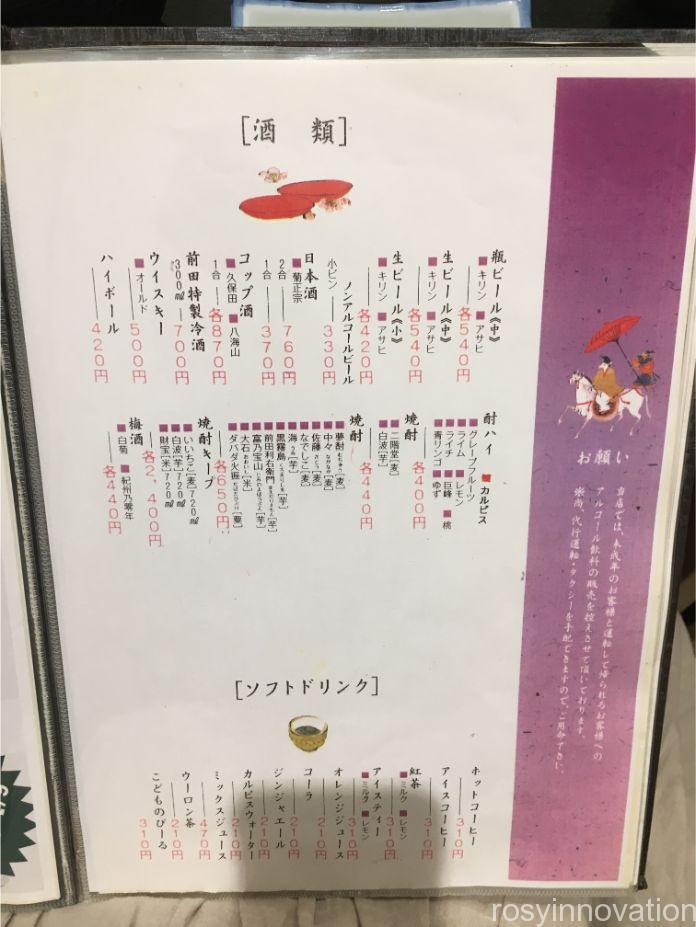 [酒 類]
瓶ビール《中》
■キリン ■アサヒ
各540円
生ビール《中》
■キリン ■アサヒ
各540円
生ビール《小》
■キリン ■アサヒ
各420円
ノンアルコールビール
小ビン
330円
日本酒
■菊正宗
2合 760円
1合 370円
コップ酒
■久保田 ■八海山
1合 各870円
前田特製冷酒
300㎖ 700円
ウイスキー
■オールド
500円
ハイボール
420円
酎ハイ ■カルピス
■グレープフルーツ
■ライム ■レモン
■ライチ ■巨峰 ■桃
■青リンゴ ■ゆず
各400円
焼酎
■二階堂[麦]
■白波[芋]
各440円
焼酎
■夢酎[麦]
■中々[麦]
■佐藤[麦]
■なでしこ[麦]
■海[芋]
■黒霧島[芋]
■前田利右衛門[芋]
■富乃宝山[芋]
■大石[米]
■ダバダ火振[栗]
各650円
焼酎キープ
■いいちこ[麦]720㎖
■白波[芋]720㎖
■財宝[米]720㎖
各2,400円
梅酒
■白菊 ■紀州乃零年
各440円
お願い
当店では、未成年のお客様と運転して帰られるお客様への
アルコール飲料の販売を控えさせて頂いております。
尚、代行運転・タクシーを手配できますので、ご用命下さい。
[ソフトドリンク]
ホットコーヒー
310円
アイスコーヒー
310円
紅茶
■ミルク ■レモン
310円
アイスティー
■ミルク ■レモン
310円
オレンジジュース
310円
コーラ
210円
ジンジャエール
210円
カルピスウォーター
210円
ミックスジュース
470円
ウーロン茶
210円
こどものびーる
310円
rosyinnovation